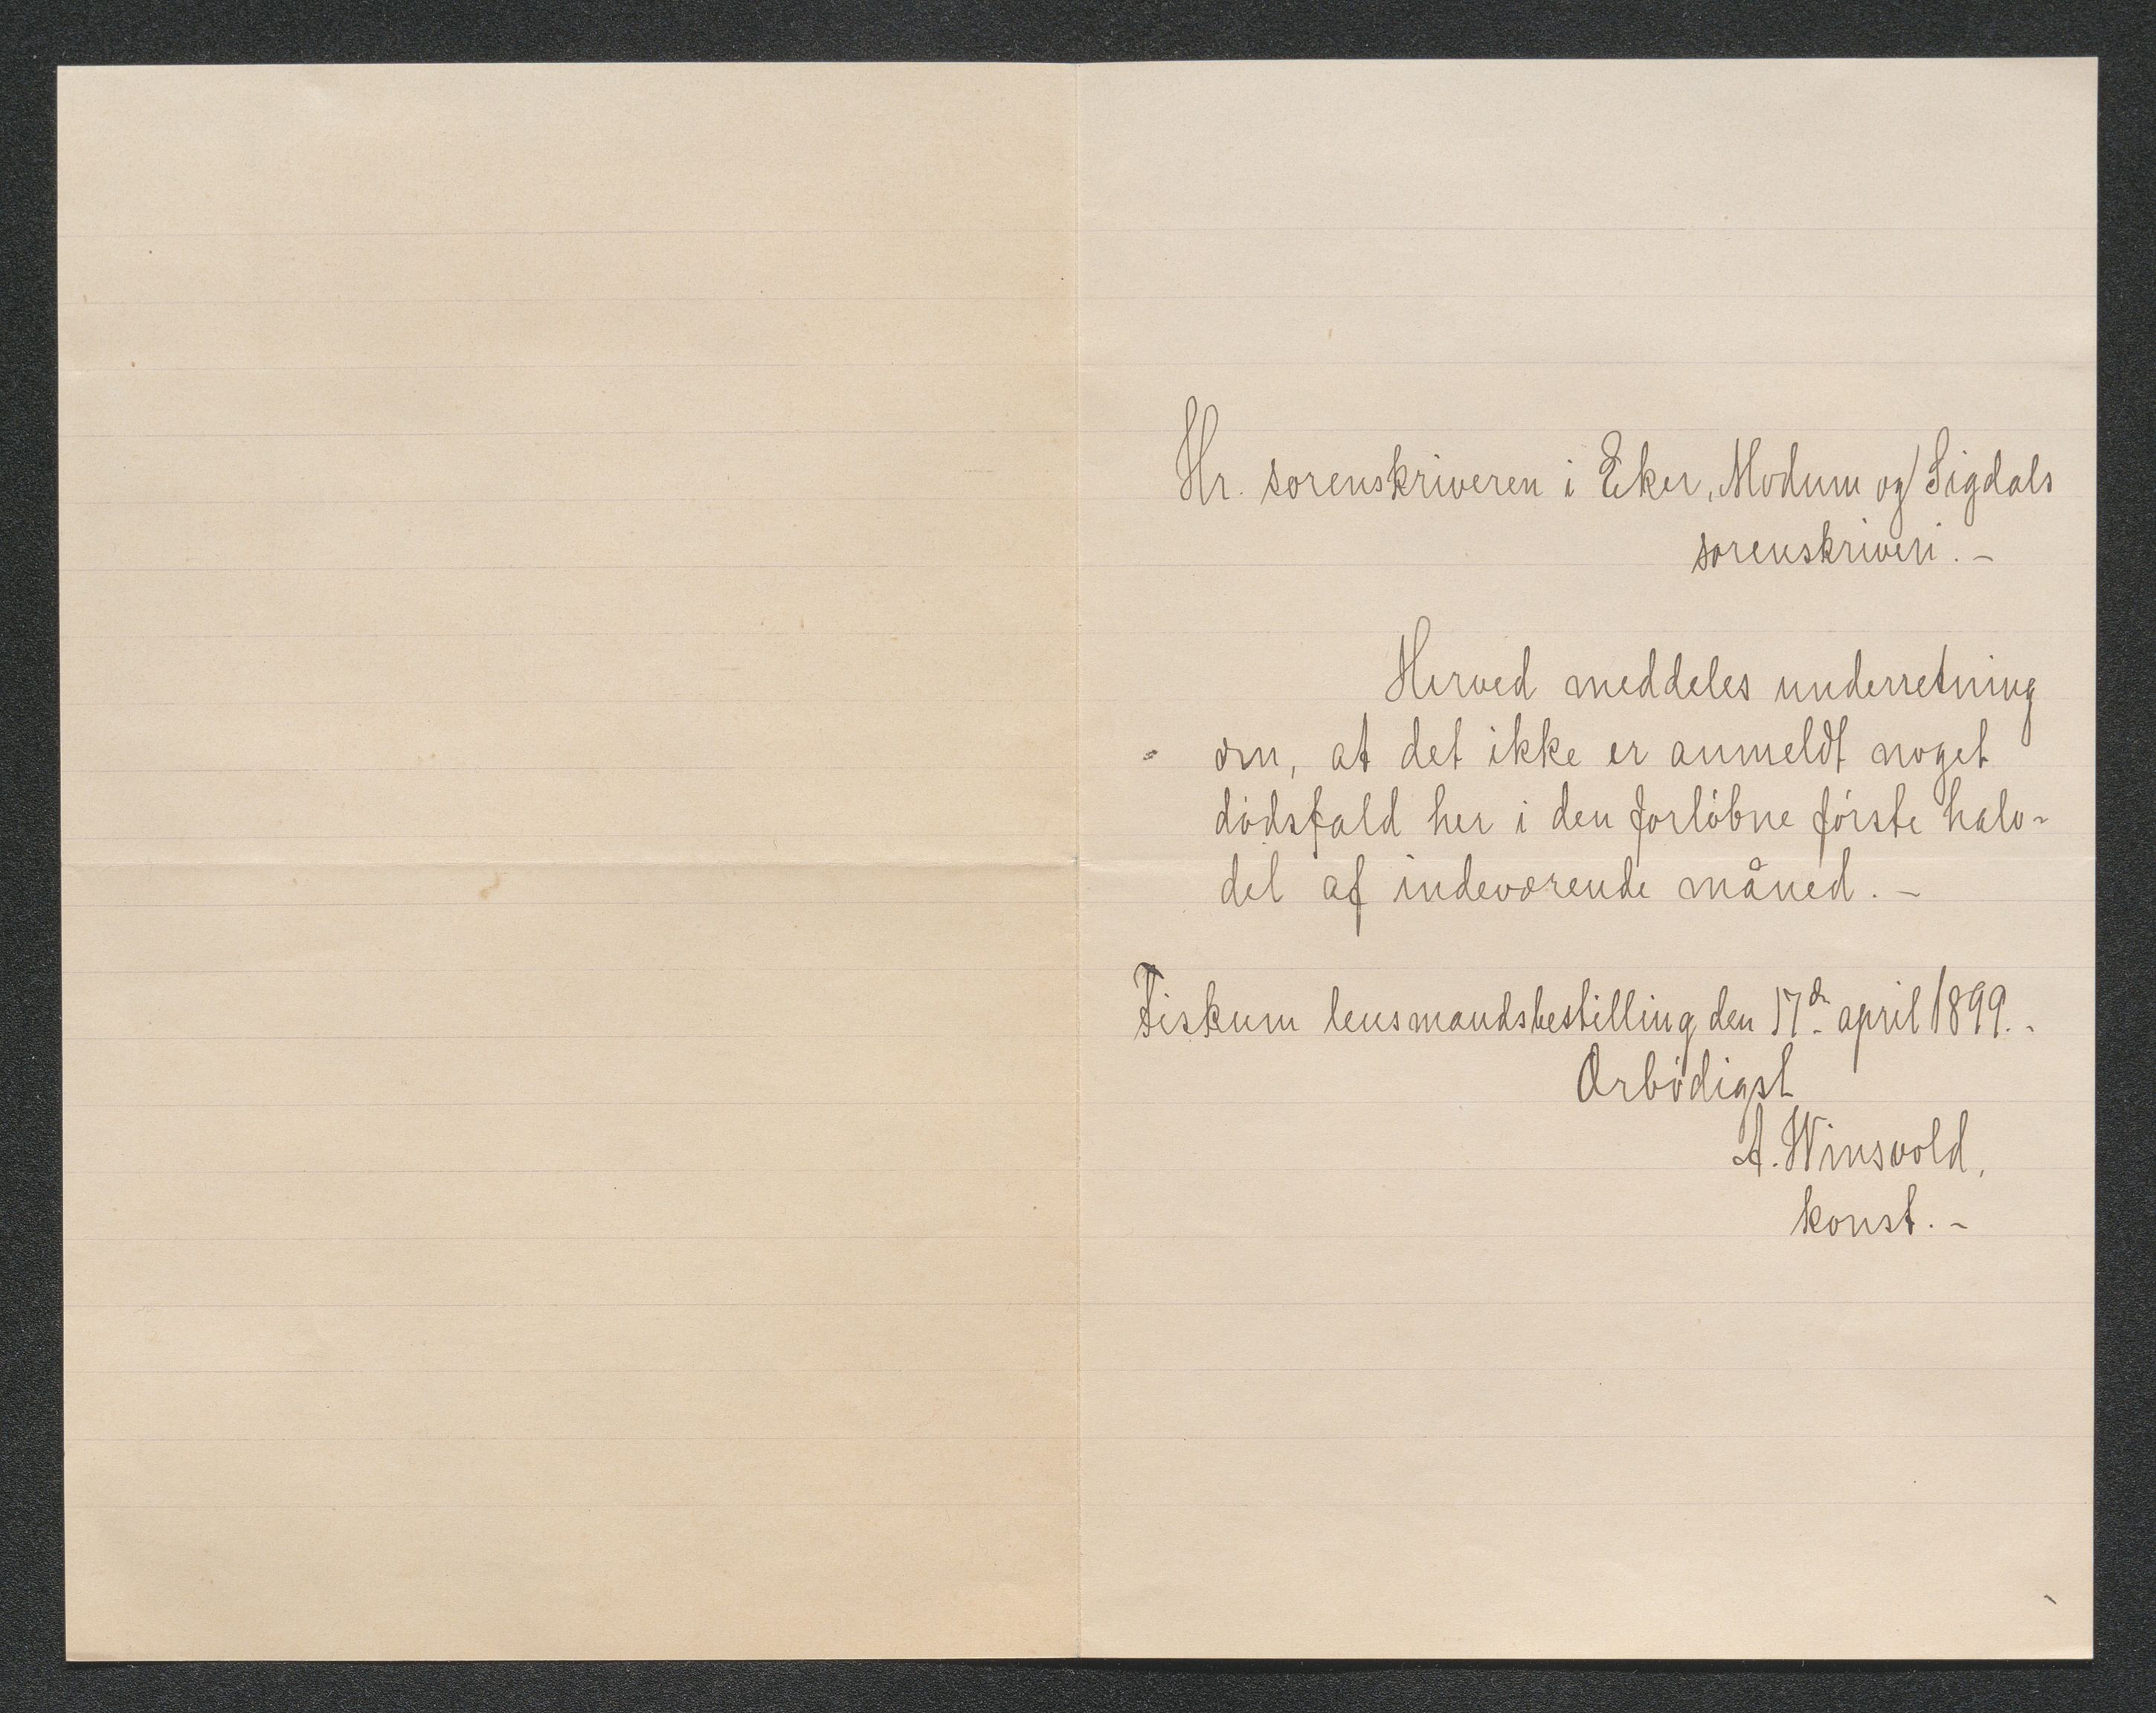 Hr. sorenskriveren i Eker, Modum og Sigdals
sorenskriveri. -
Herved meddeles underretning
om, at det ikke er anmeldt noget
dødsfald her i den forløbne første halv-
del af indeværende måned. -
Fiskum lensmandsbestilling den 17de april 1899. -
Ærbødigst
A. Winsvold,
konst. -